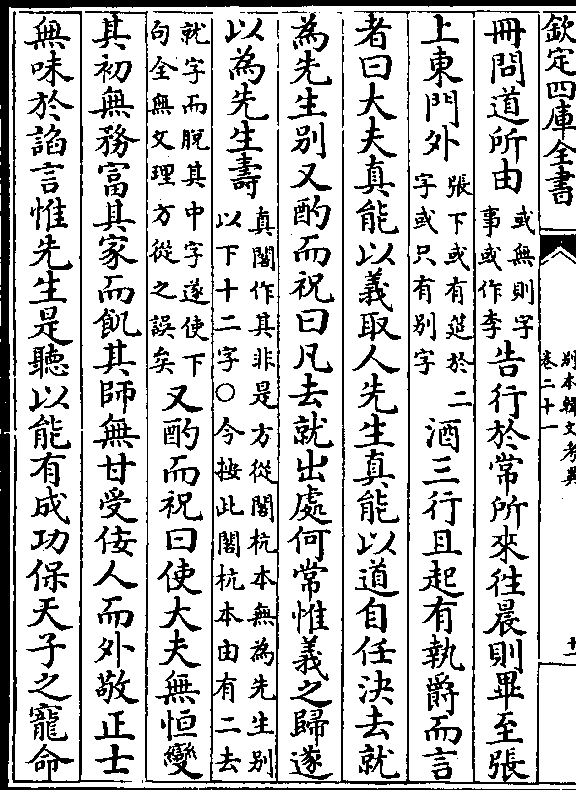 欽定四庫全書
别本韓文考異
卷二十一
十一
冊問道所由
或無則字
事或作李
告行於常所來往晨則畢至張
上東門外
張下或有筵於二
字或只有别字
酒三行且起有執爵而言
者曰大夫真能以義取人先生真能以道自任決去就
為先生别又酌而祝曰凡去就出處何常惟義之歸遂
以為先生壽
真閣作其非是方從閣杭本無為先生别
以下十二字○今按此閣杭本由有二去
就字而脱其中字遂使下
句全無文理方從之誤矣
又酌而祝曰使大夫無恒變
其初無務富其家而飢其師無甘受佞人而外敬正士
無味於諂言惟先生是聽以能有成功保天子之寵命